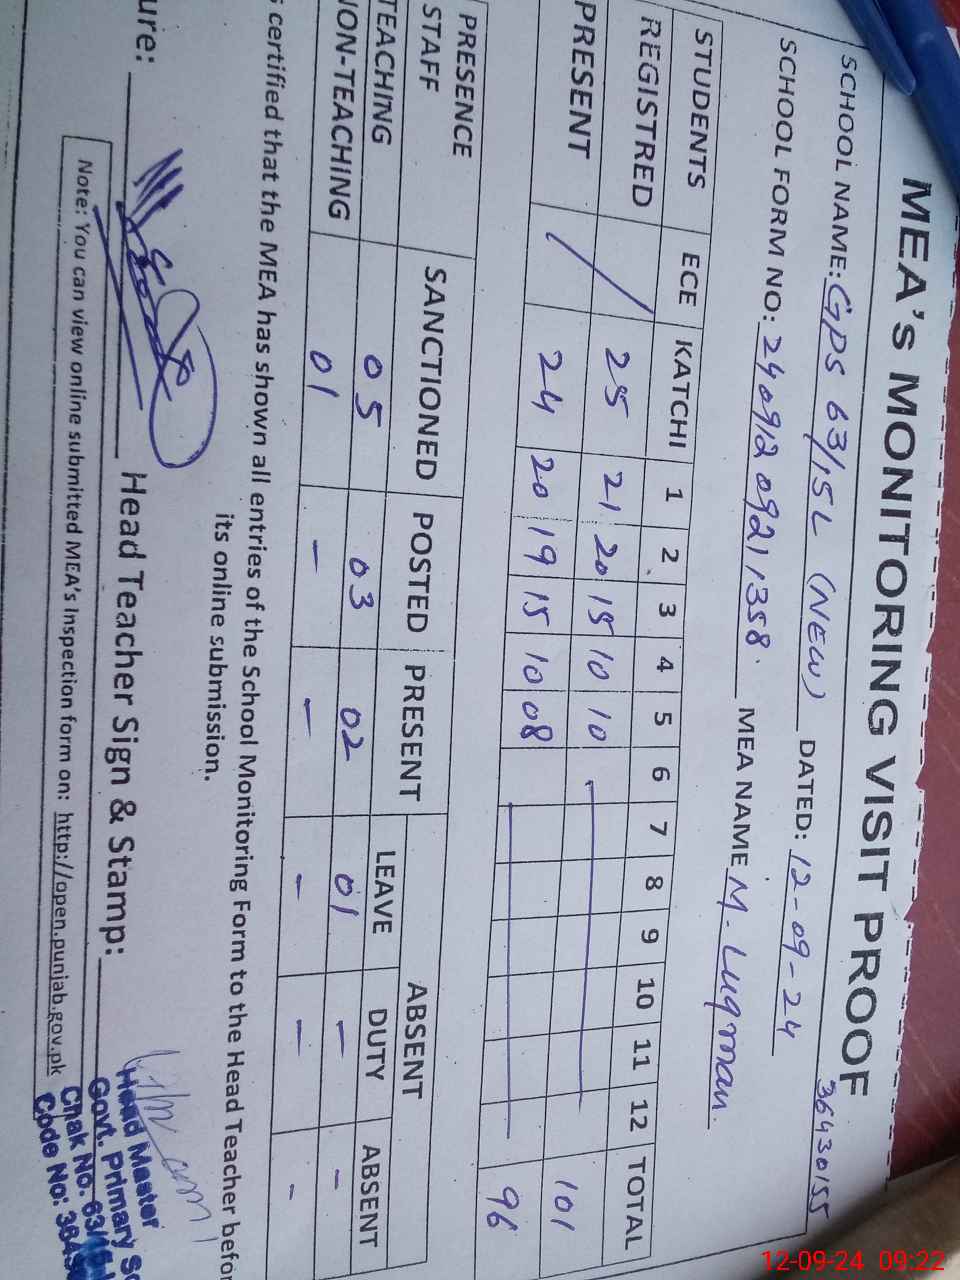 MEA's MONITORING VISIT PROOF
36430155
SCHOOL NAME: GPS 63/15L (NEW) DATED: 12-09-24
SCHOOL FORM NO: 2409120921358. MEA NAME M. Luqman.
STUDENTS ECE KATCHI 1 2 3 4 5 6 7 8 9 10 11 12 TOTAL
REGISTRED / 25 21 20 15 10 10 101
PRESENT 24 20 19 15 10 08 96
PRESENCE SANCTIONED POSTED PRESENT ABSENT
STAFF LEAVE DUTY ABSENT
TEACHING 05 03 02 01 - -
NON-TEACHING 01 - - - - -
certified that the MEA has shown all entries of the School Monitoring Form to the Head Teacher before
its online submission.
ure: Head Teacher Sign & Stamp:
Head Master
Govt. Primary Sc
Chak No. 63/15-L
Code No: 3643
Note: You can view online submitted MEA's Inspection form on: http://open.punjab.gov.pk
12-09-24 09:22